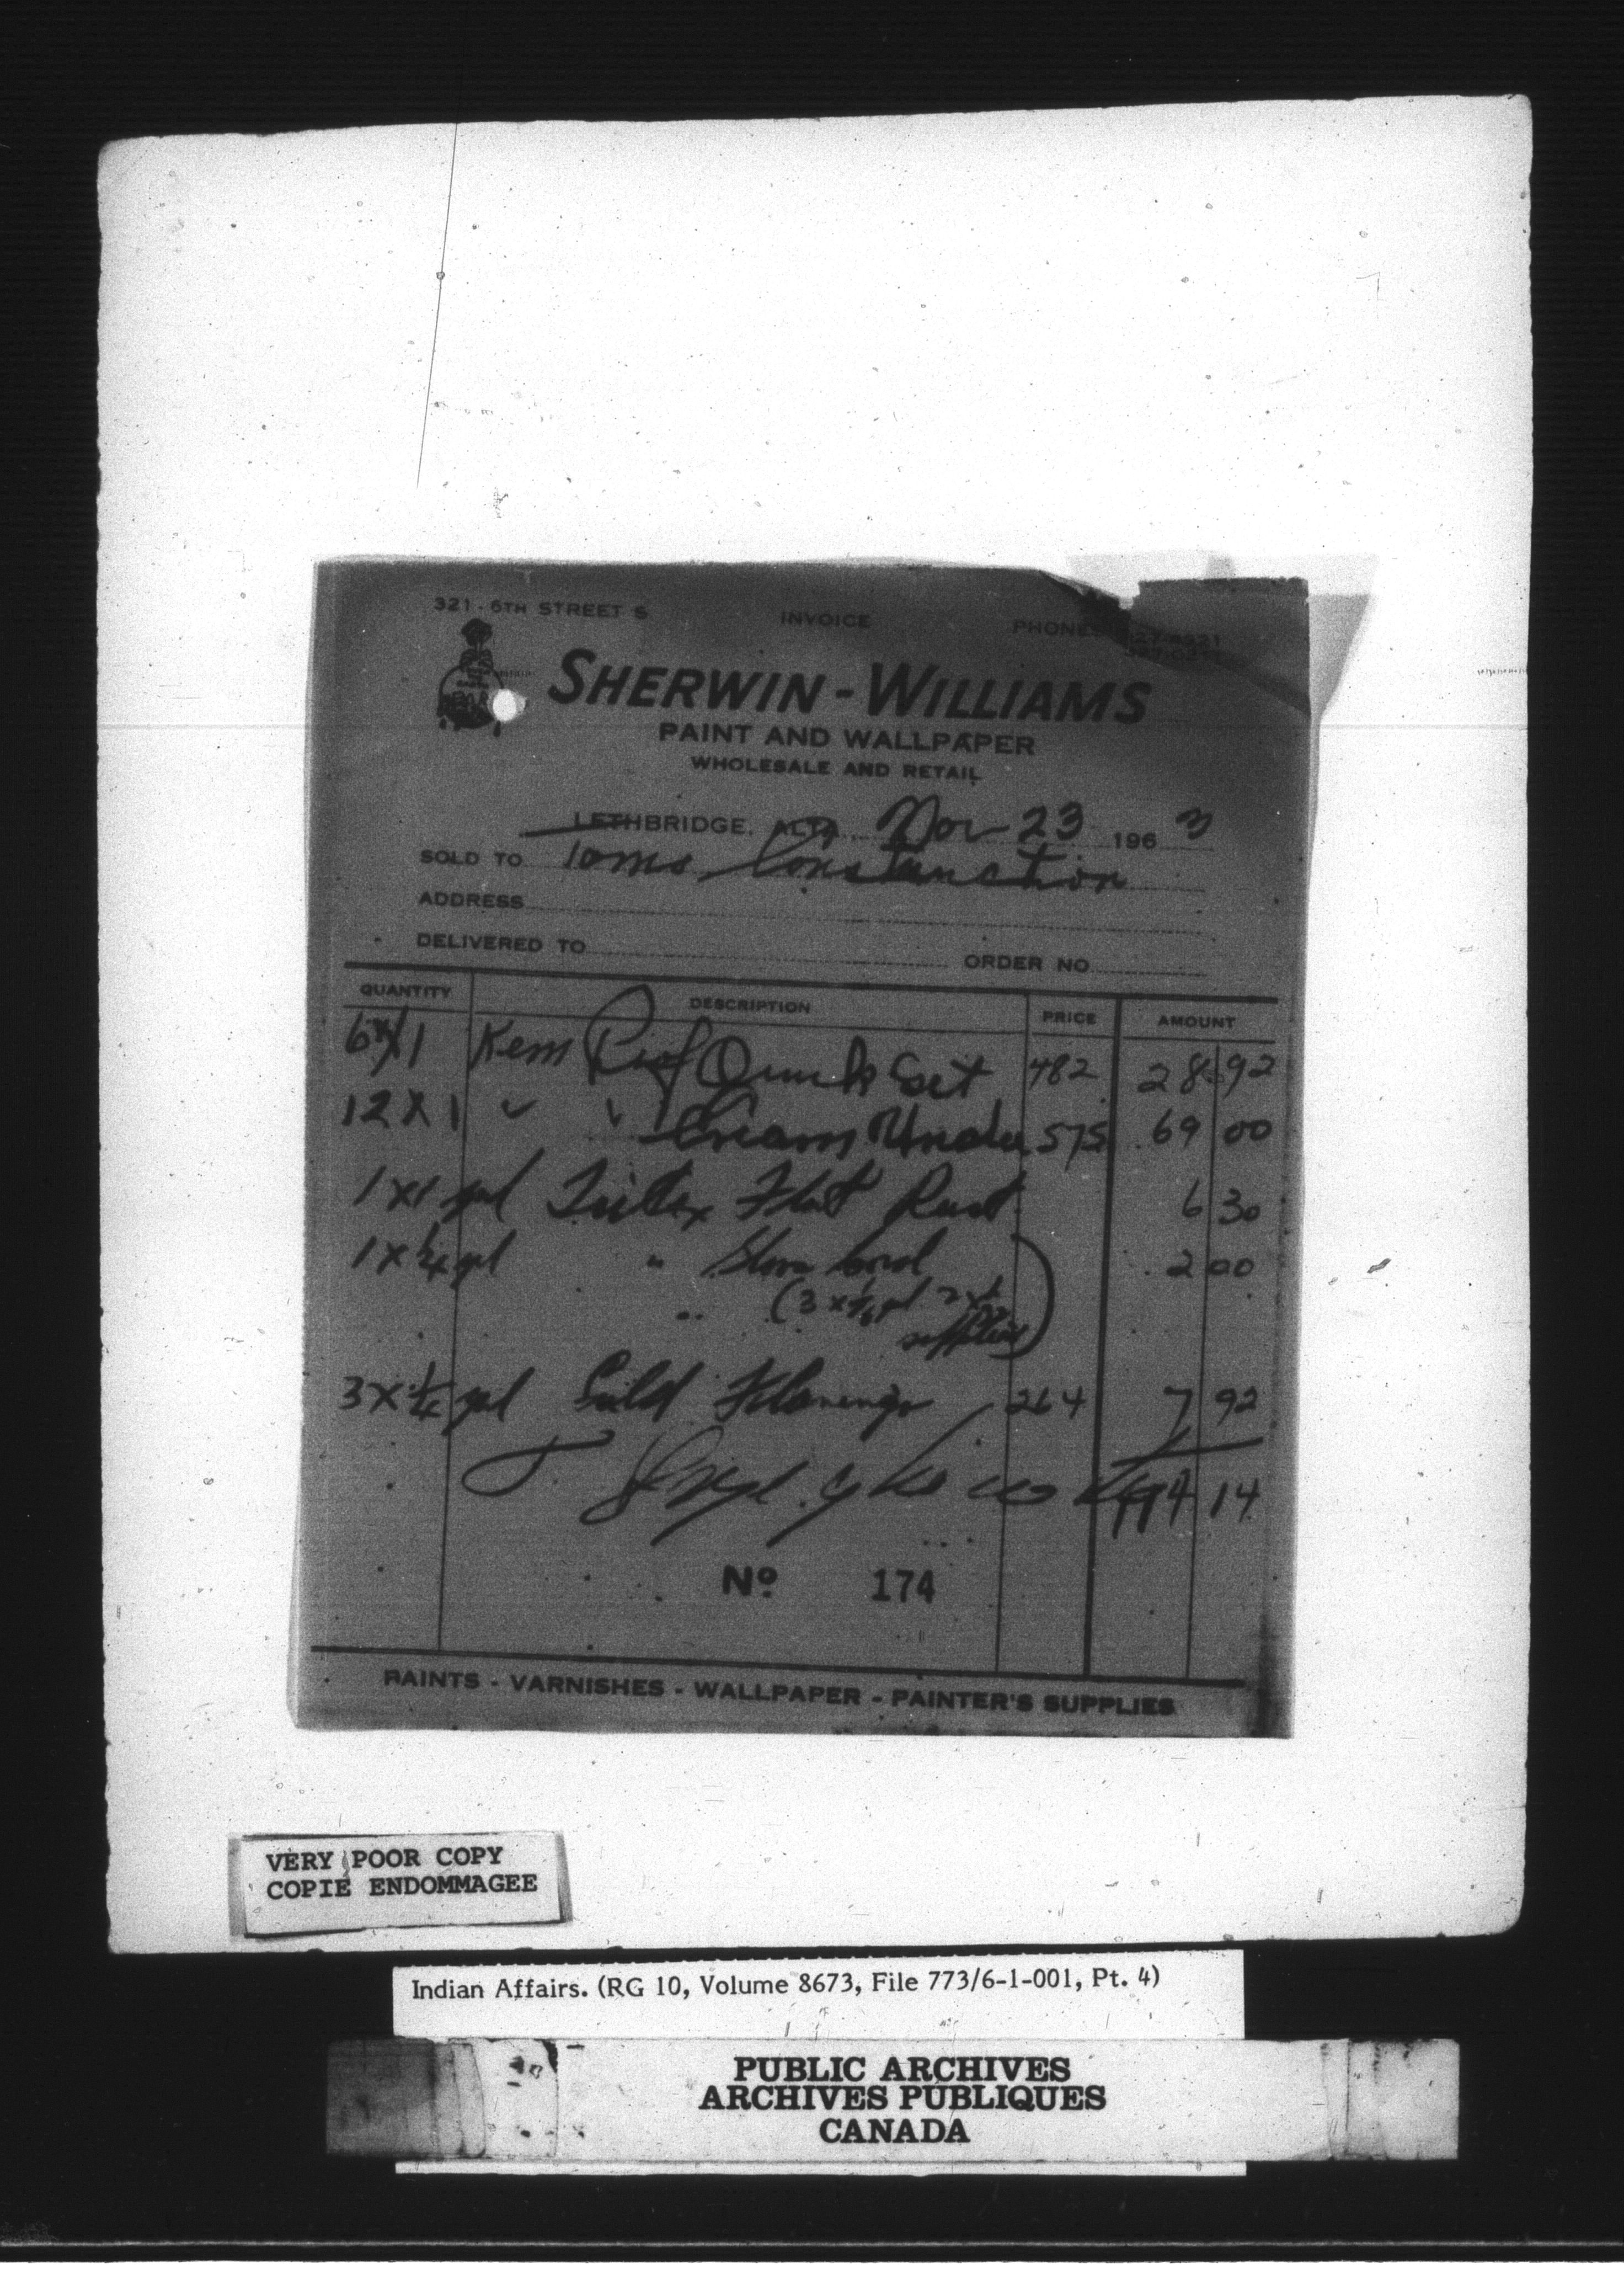 321 - 6TH STREET S INVOICE PHONE
SHERWIN-WILLIAMS
PAINT AND WALLPAPER
WHOLESALE AND RETAIL
LETHBRIDGE, ALTA. Nov 23 1963
SOLD TO Toms Construction
ADDRESS
DELIVERED TO ORDER NO.
QUANTITY DESCRIPTION PRICE AMOUNT
6 x 1 Kem Prof Quick Set 482 28.92
12 X 1 " " Cream Under 575 69 00
1 x 1 gal Flat Rust 6 30
1 x 1/4 gal " 2 00
" (3 x
3 x 1/4 gal Flamingo 264 7 92
14
No 174
PAINTS - VARNISHES - WALLPAPER - PAINTER'S SUPPLIES
VERY POOR COPY
COPIE ENDOMMAGEE
Indian Affairs. (RG 10, Volume 8673, File 773/6-1-001, Pt. 4)
PUBLIC ARCHIVES
ARCHIVES PUBLIQUES
CANADA